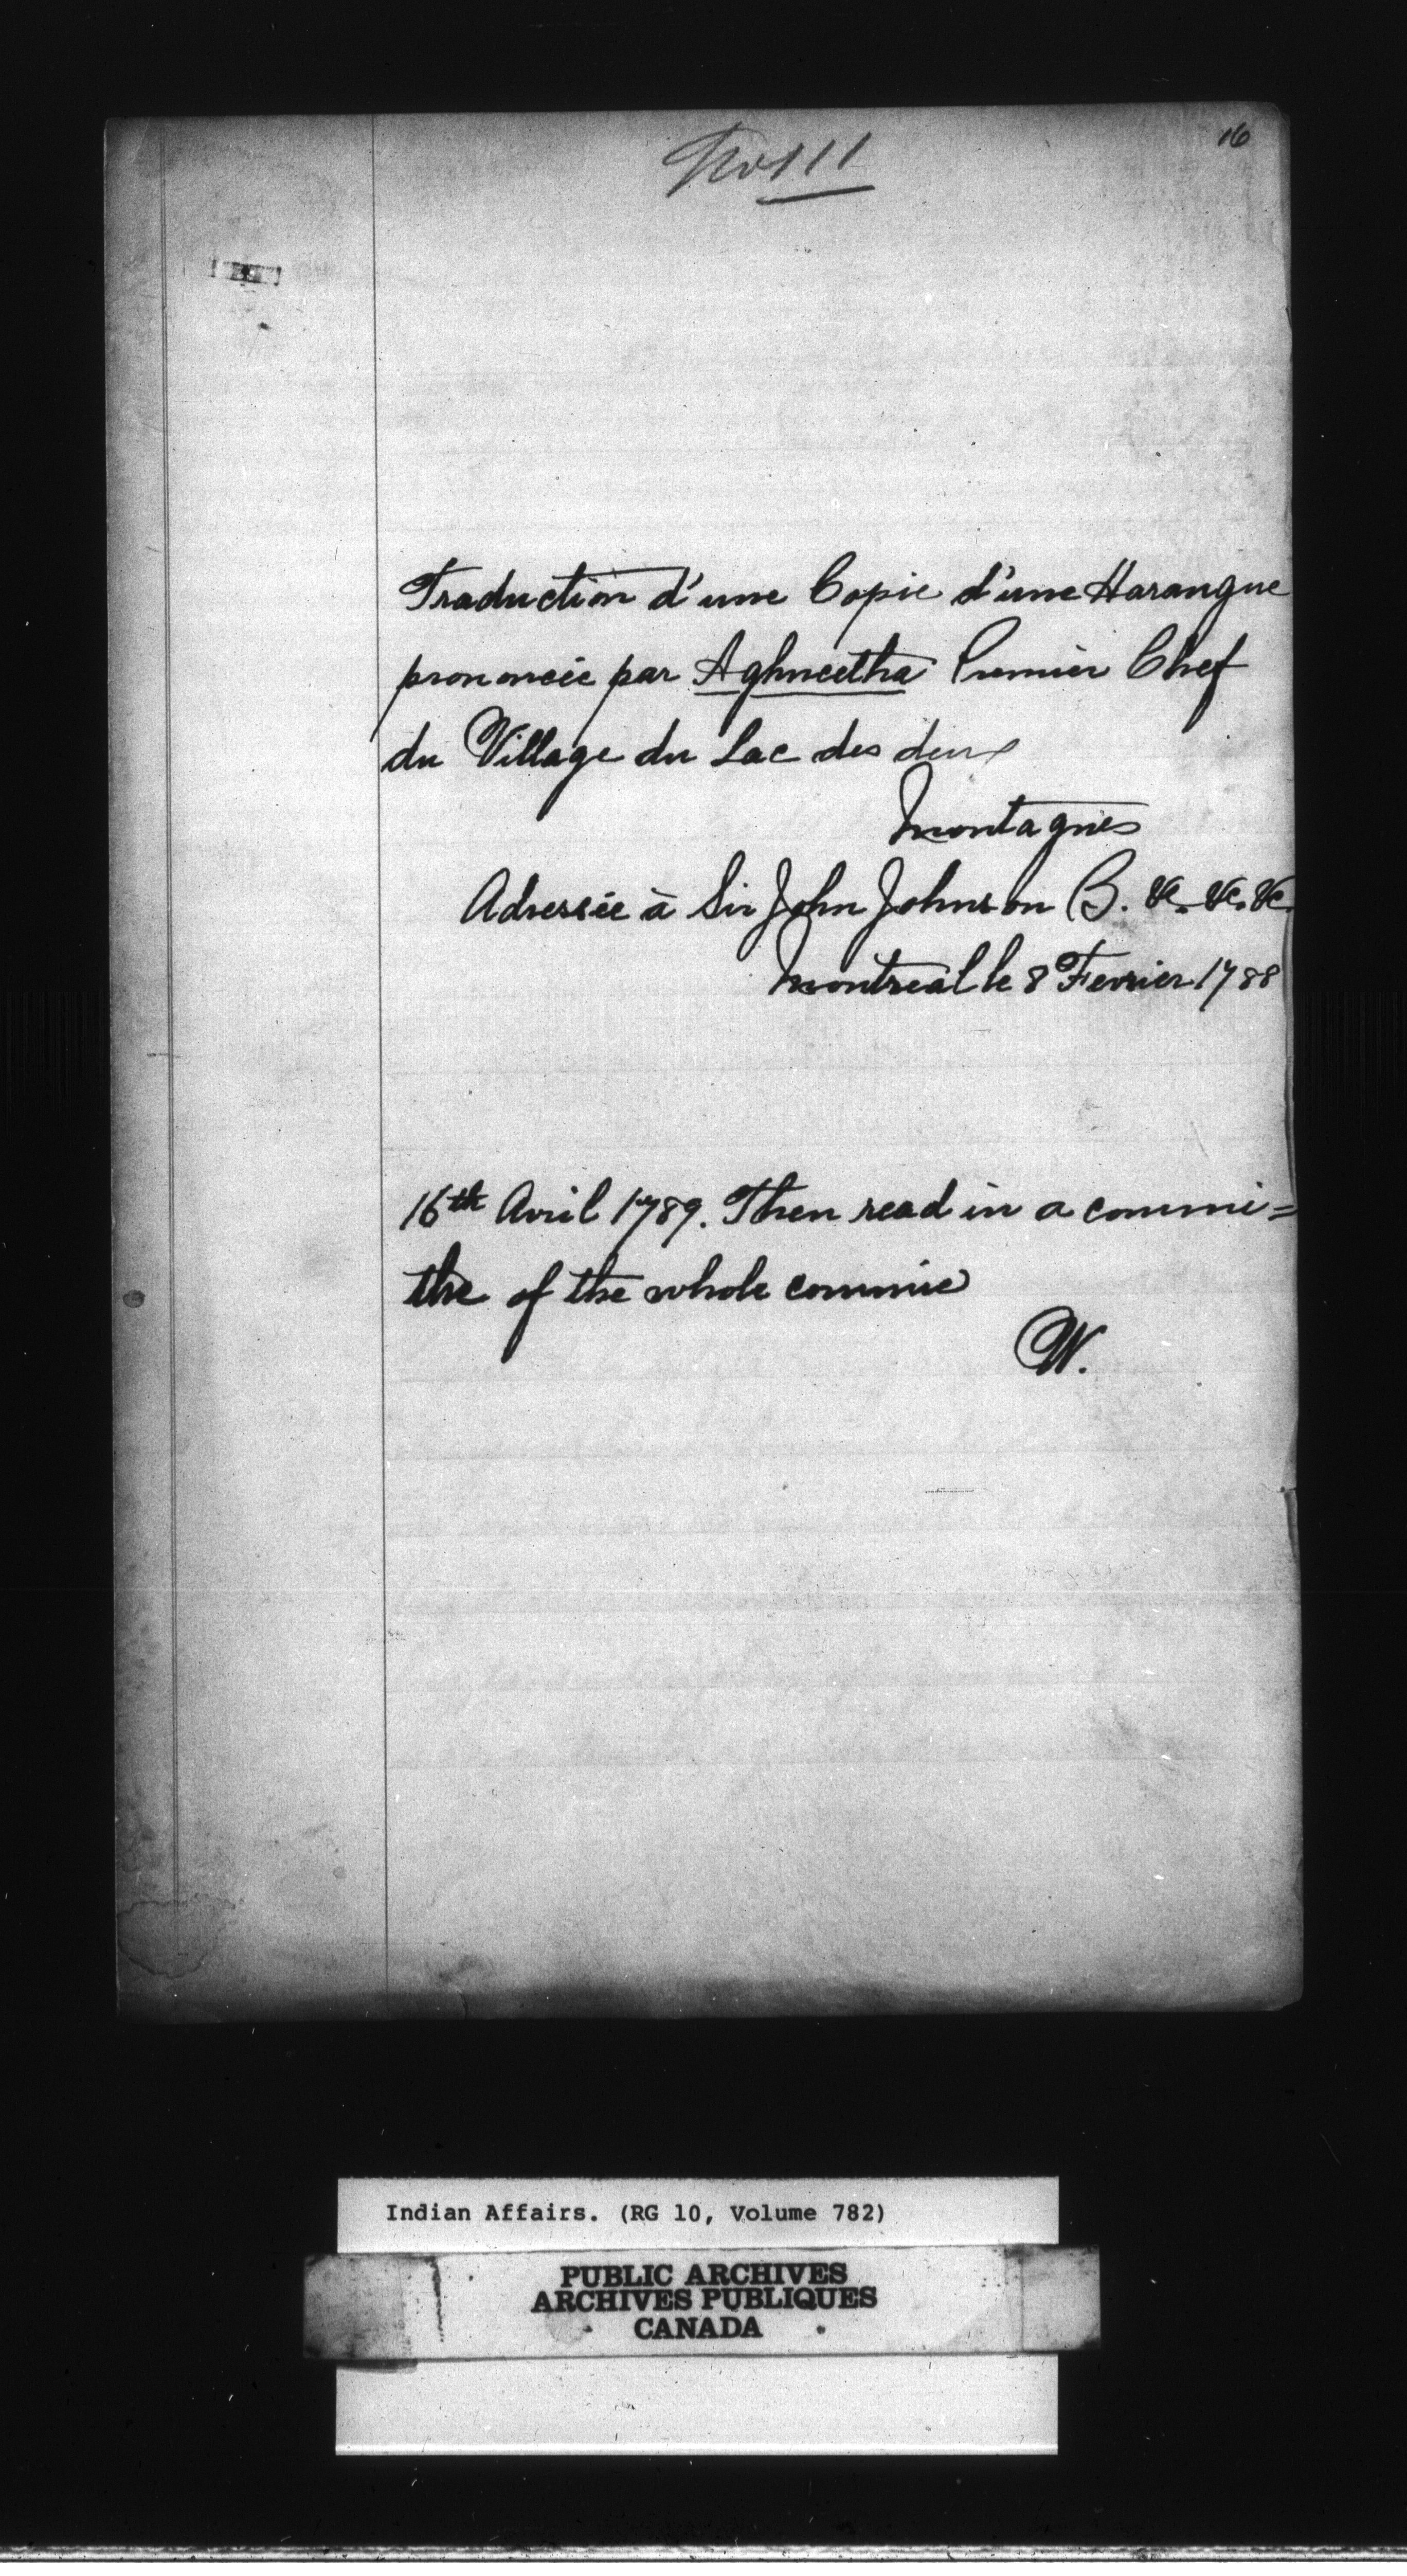 16
No 111
Traduction d'une Copie d'une Harangue
prononcée par Aghneetha Premier Chef
du Village du Lac des deux
Montagnes
Adressée à Sir John Johnson B. &c. &c. &c.
Montreal le 8 Fevrier 1788
16th Avril 1789. Then read in a commi=
the of the whole commie
W.
Indian Affairs. (RG 10, Volume 782)
PUBLIC ARCHIVES
ARCHIVES PUBLIQUES
CANADA